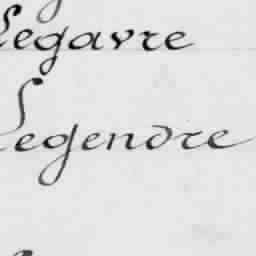 Legavre
Legendre